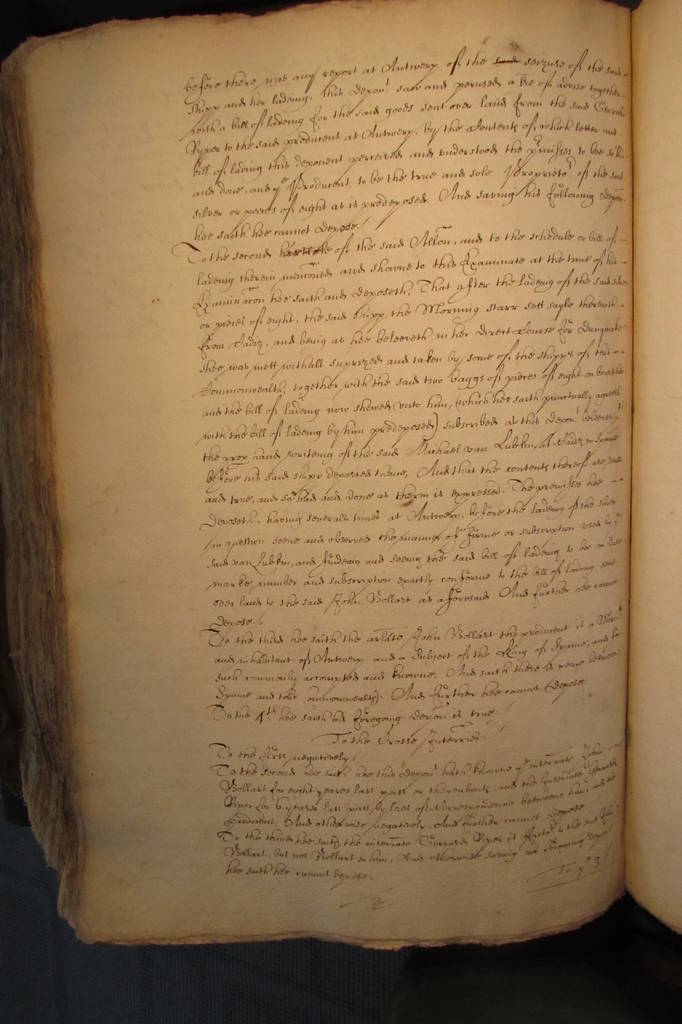 before there was any report at Antwerp of the seizure of the said
shipp and her ladeing, This depont saw and perused a lre of advise together
with a bill of ladeing for the said goods sent over land from the said
Piper to the said producent at Antwerp, by the Contents of which letter and
bill of lading this deponent perceived and understood the prmisses to be so
and done, and ye Producent to be the true and sole Proprietor of the said
silver or peeces of eight as is predeposed. And saving his following depon
hee saith hee cannot depose./
To the second of the said Allon, and to the schedule or bill of
ladeing therein menconed and showne to this Examinate at the time of his
Examinacon hee saith and deposeth, That after the ladeing of the said silver
or pieces of eight, the said shipp the Morning starr sett sayle therewith
from Cadiz, and being as hee beleeveth in her direct Course for Dunquirke
shee was mett withall surprized and taken by some of the shipps of this
Commonwealth, together with the said two baggs of pieces of eight on board her
and the bill of ladeing now shewed unto him, (which hee saith punctually agreeth
with the bill of ladeing by him predeposed) subscribed as this depont beleeveth
the proper hand writeing of the said Michael van Lubkin, at Cadiz
before his said shipp departed thence, And that the contents thereof are
and true, and so had and done as therein is expressed. The premisses hee
deposeth, having severall times at Antwerp, before the ladeing of the silver
in question seene and observed the manner of firme or subscription used by ye
said van Lubkin, and findeing and seeing the said bill of ladeing to be in
marke, number and subscription exactly conforme to the bill of ladeing sent
over land to the said John Bollart as aforesaid. And further hee cannot
depose./
To the third hee saith the arlate John Bollart the producent is a Mercht
and inhabitant of Antwerp and a Subject of the King of Spaine, and for
such commonly accompted and knowne, And saith there is peace betweene
Spaine and this commonwealth. And further hee cannot depose.
To the 4th hee saith his foregoing depon is true.
To the Crosse Interries.
To the first negatively./
To the second hee saith hee this depont hath knowne ye interrate John
Bollart for eight yeares last past or thereabouts, and the
Piper for 6 yeares last past, by reason of Correspondence betweene him and the
Producent, And otherwise negatively, And further cannot depose
To the third hee saith the interrate Gerrard Piper is factor to the said John
Bollart, but not Bollart to him, And otherwise saving his foregoing depon
hee saith hee cannot depose.
To ye 3